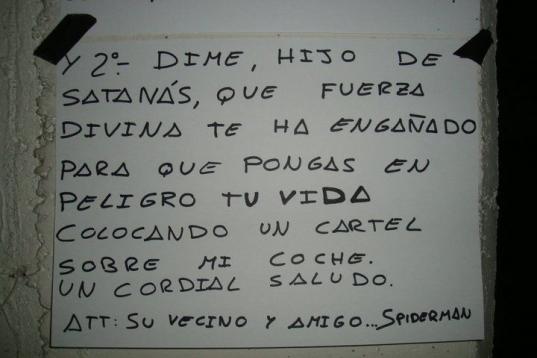 Y 2º.- DIME, HIJO DE
SATANÁS, QUE FUERZA
DIVINA TE HA ENGAÑADO
PARA QUE PONGAS EN
PELIGRO TU VIDA
COLOCANDO UN CARTEL
SOBRE MI COCHE.
UN CORDIAL SALUDO.
ATT: SU VECINO Y AMIGO...SPIDERMAN